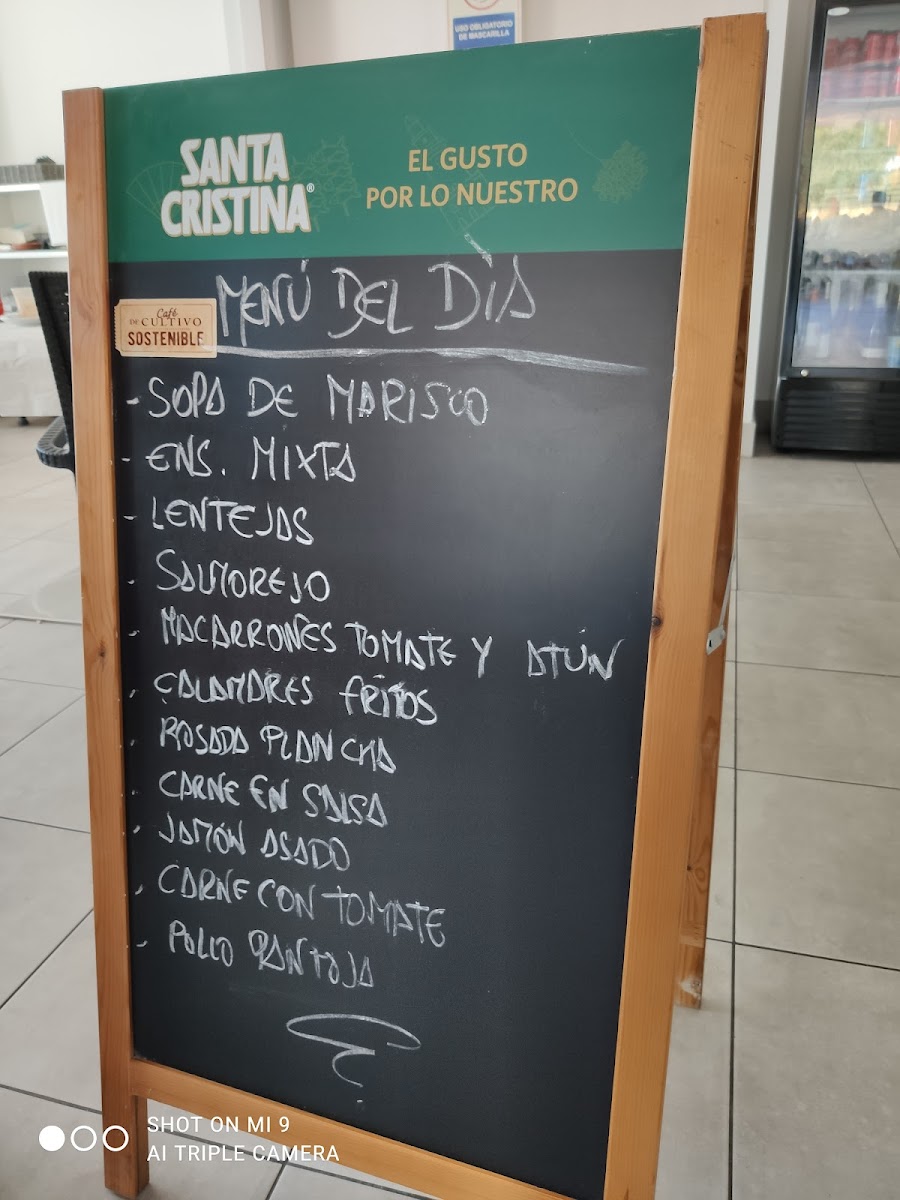 USO OBLIGATORIO
DE MASCARILLA
SANTA
CRISTINA®
EL GUSTO
POR LO NUESTRO
MENÚ DEL DÍA
Café
DE CULTIVO
SOSTENIBLE
- SOPA DE MARISCO
- ENS. MIXTA
- LENTEJAS
- SALMOREJO
- MACARRONES TOMATE Y ATÚN
- CALAMARES FRITOS
- ROSADA PLANCHA
- CARNE EN SALSA
- JAMÓN ASADO
- CARNE CON TOMATE
- POLLO PANTOJA
SHOT ON MI 9
AI TRIPLE CAMERA